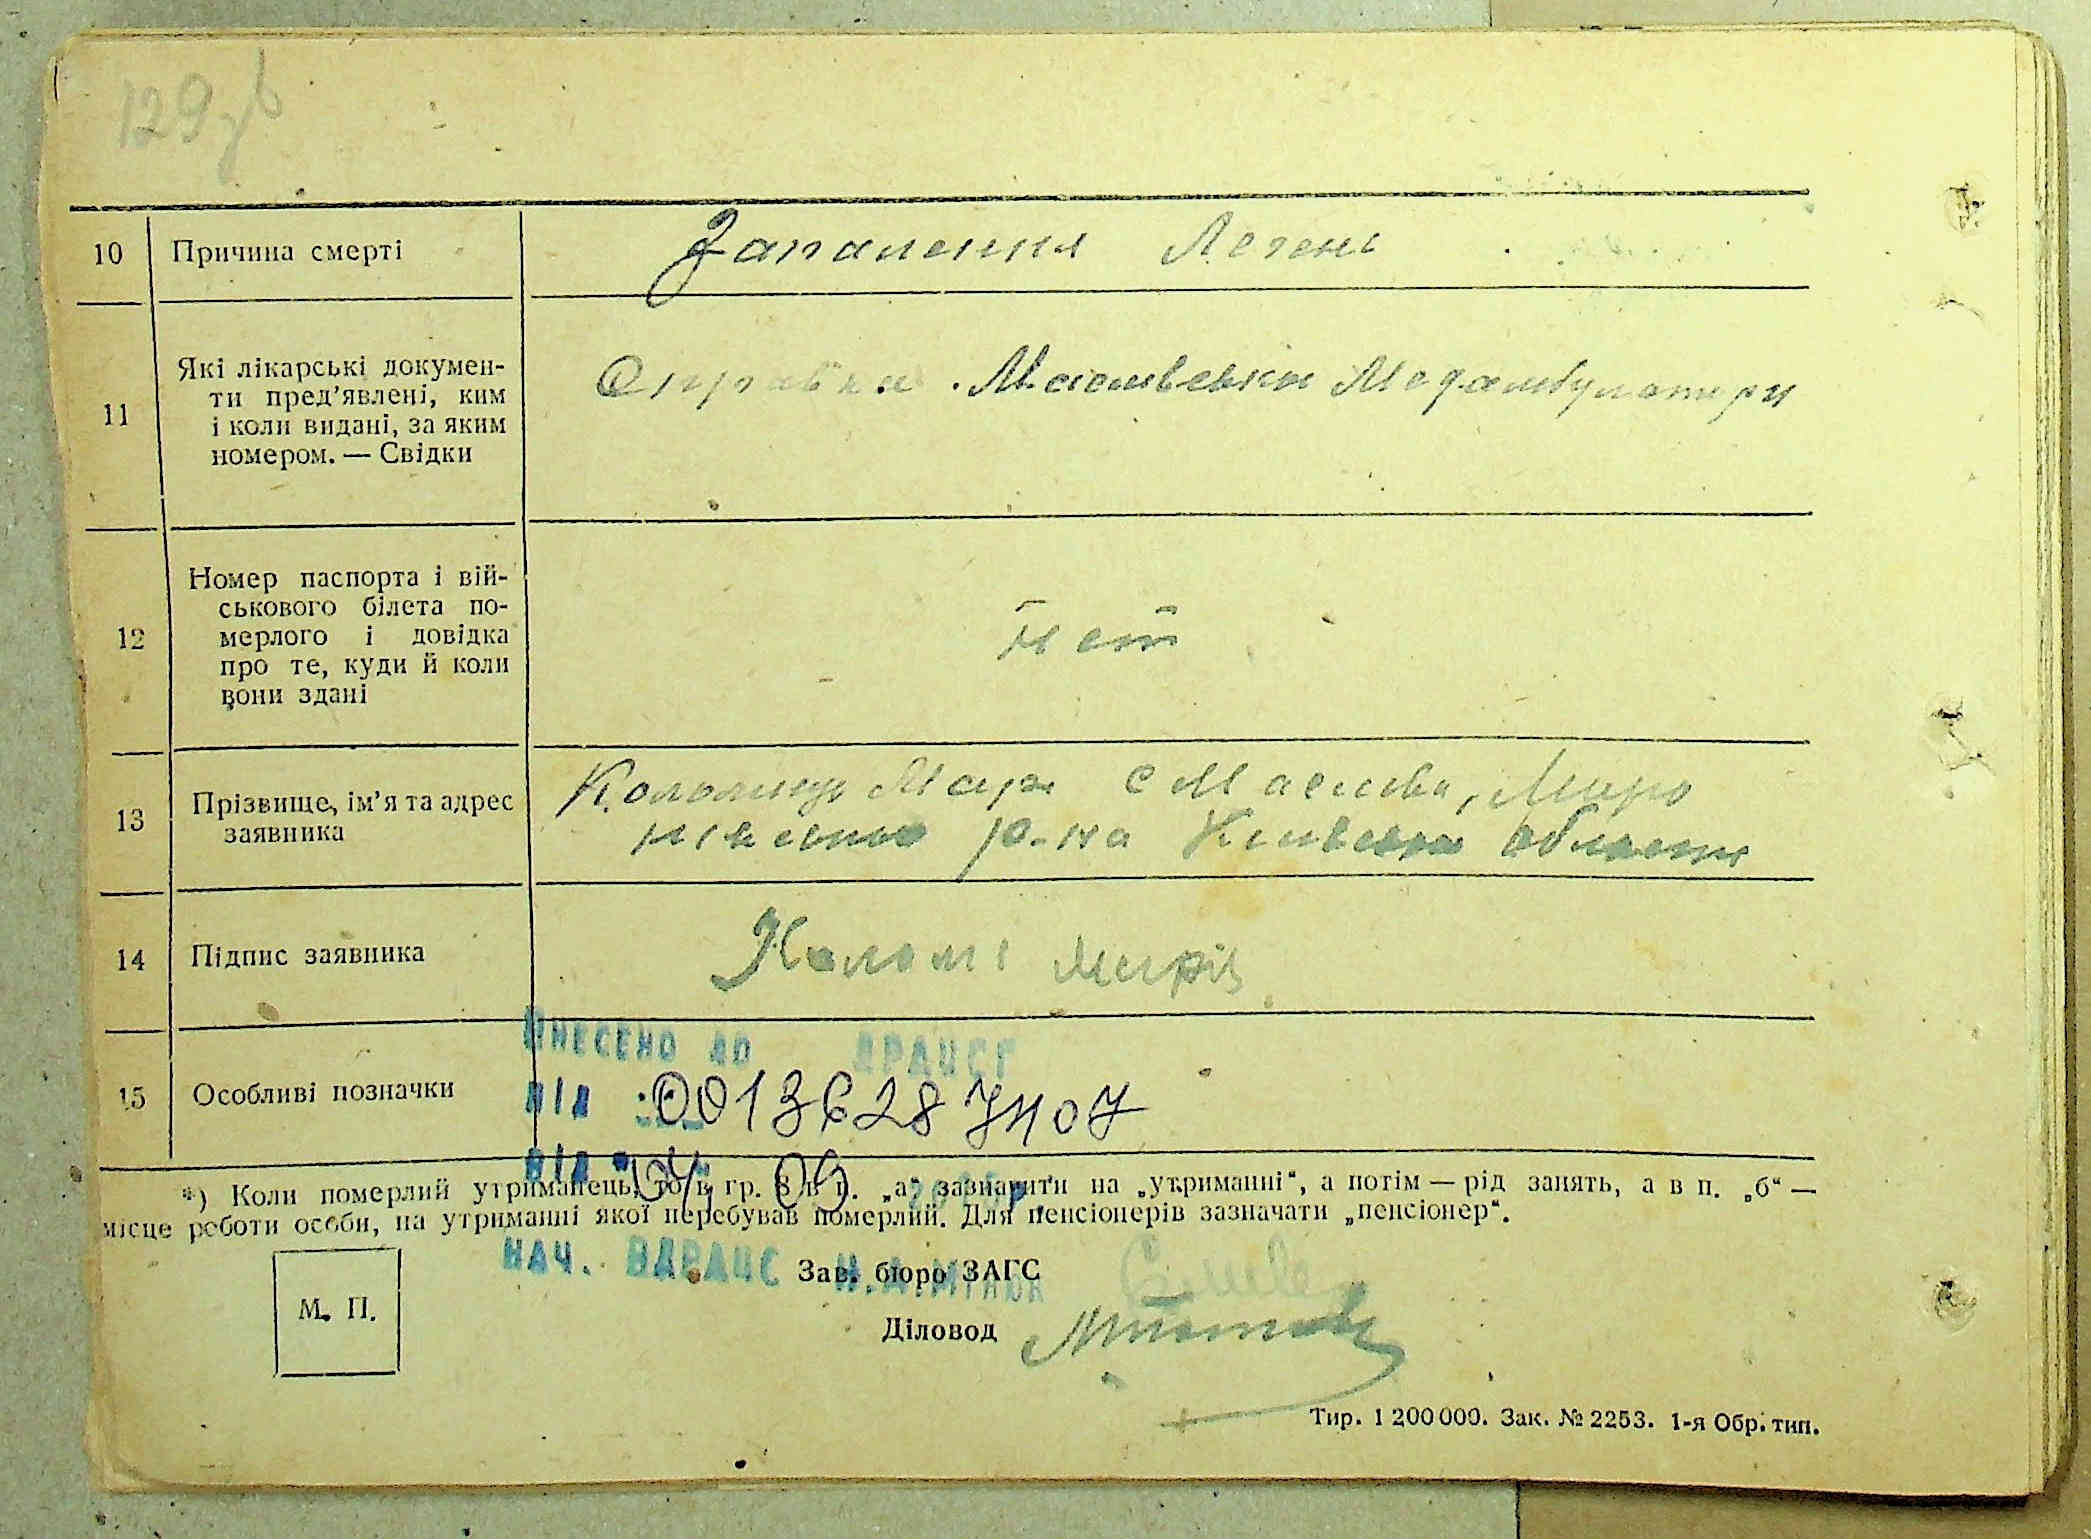 129
10 Причина смерті Запалення Легень
11 Які лікарські докумен-
ти пред’явлені, ким
і коли видані, за яким
номером. — Свідки
Справка Маслівської Медамбулаторії
12 Номер паспорта і вій-
ськового білета по-
мерлого і довідка
про те, куди й коли
вони здані
нет
13 Прізвище, ім’я та адрес
заявника
с Маслівка, Миро
нівського р-на Київської області
14 Підпис заявника
15 Особливі позначки
ВНЕСЕНО ДО ДРАЦСГ
ВІД
00136287407
ВІД 04 05
*) Коли померлий утриманець, то в гр. 8 в п. „а“ зазначити на „утриманні“, а потім — рід занять, а в п. „б“ —
місце роботи особи, на утриманні якої перебував померлий. Для пенсіонерів зазначати „пенсіонер“.
НАЧ. ВДРАЦС
Зав. бюро ЗАГС
М. П.
Діловод
Тир. 1 200 000. Зак. № 2253. 1-я Обр. тип.